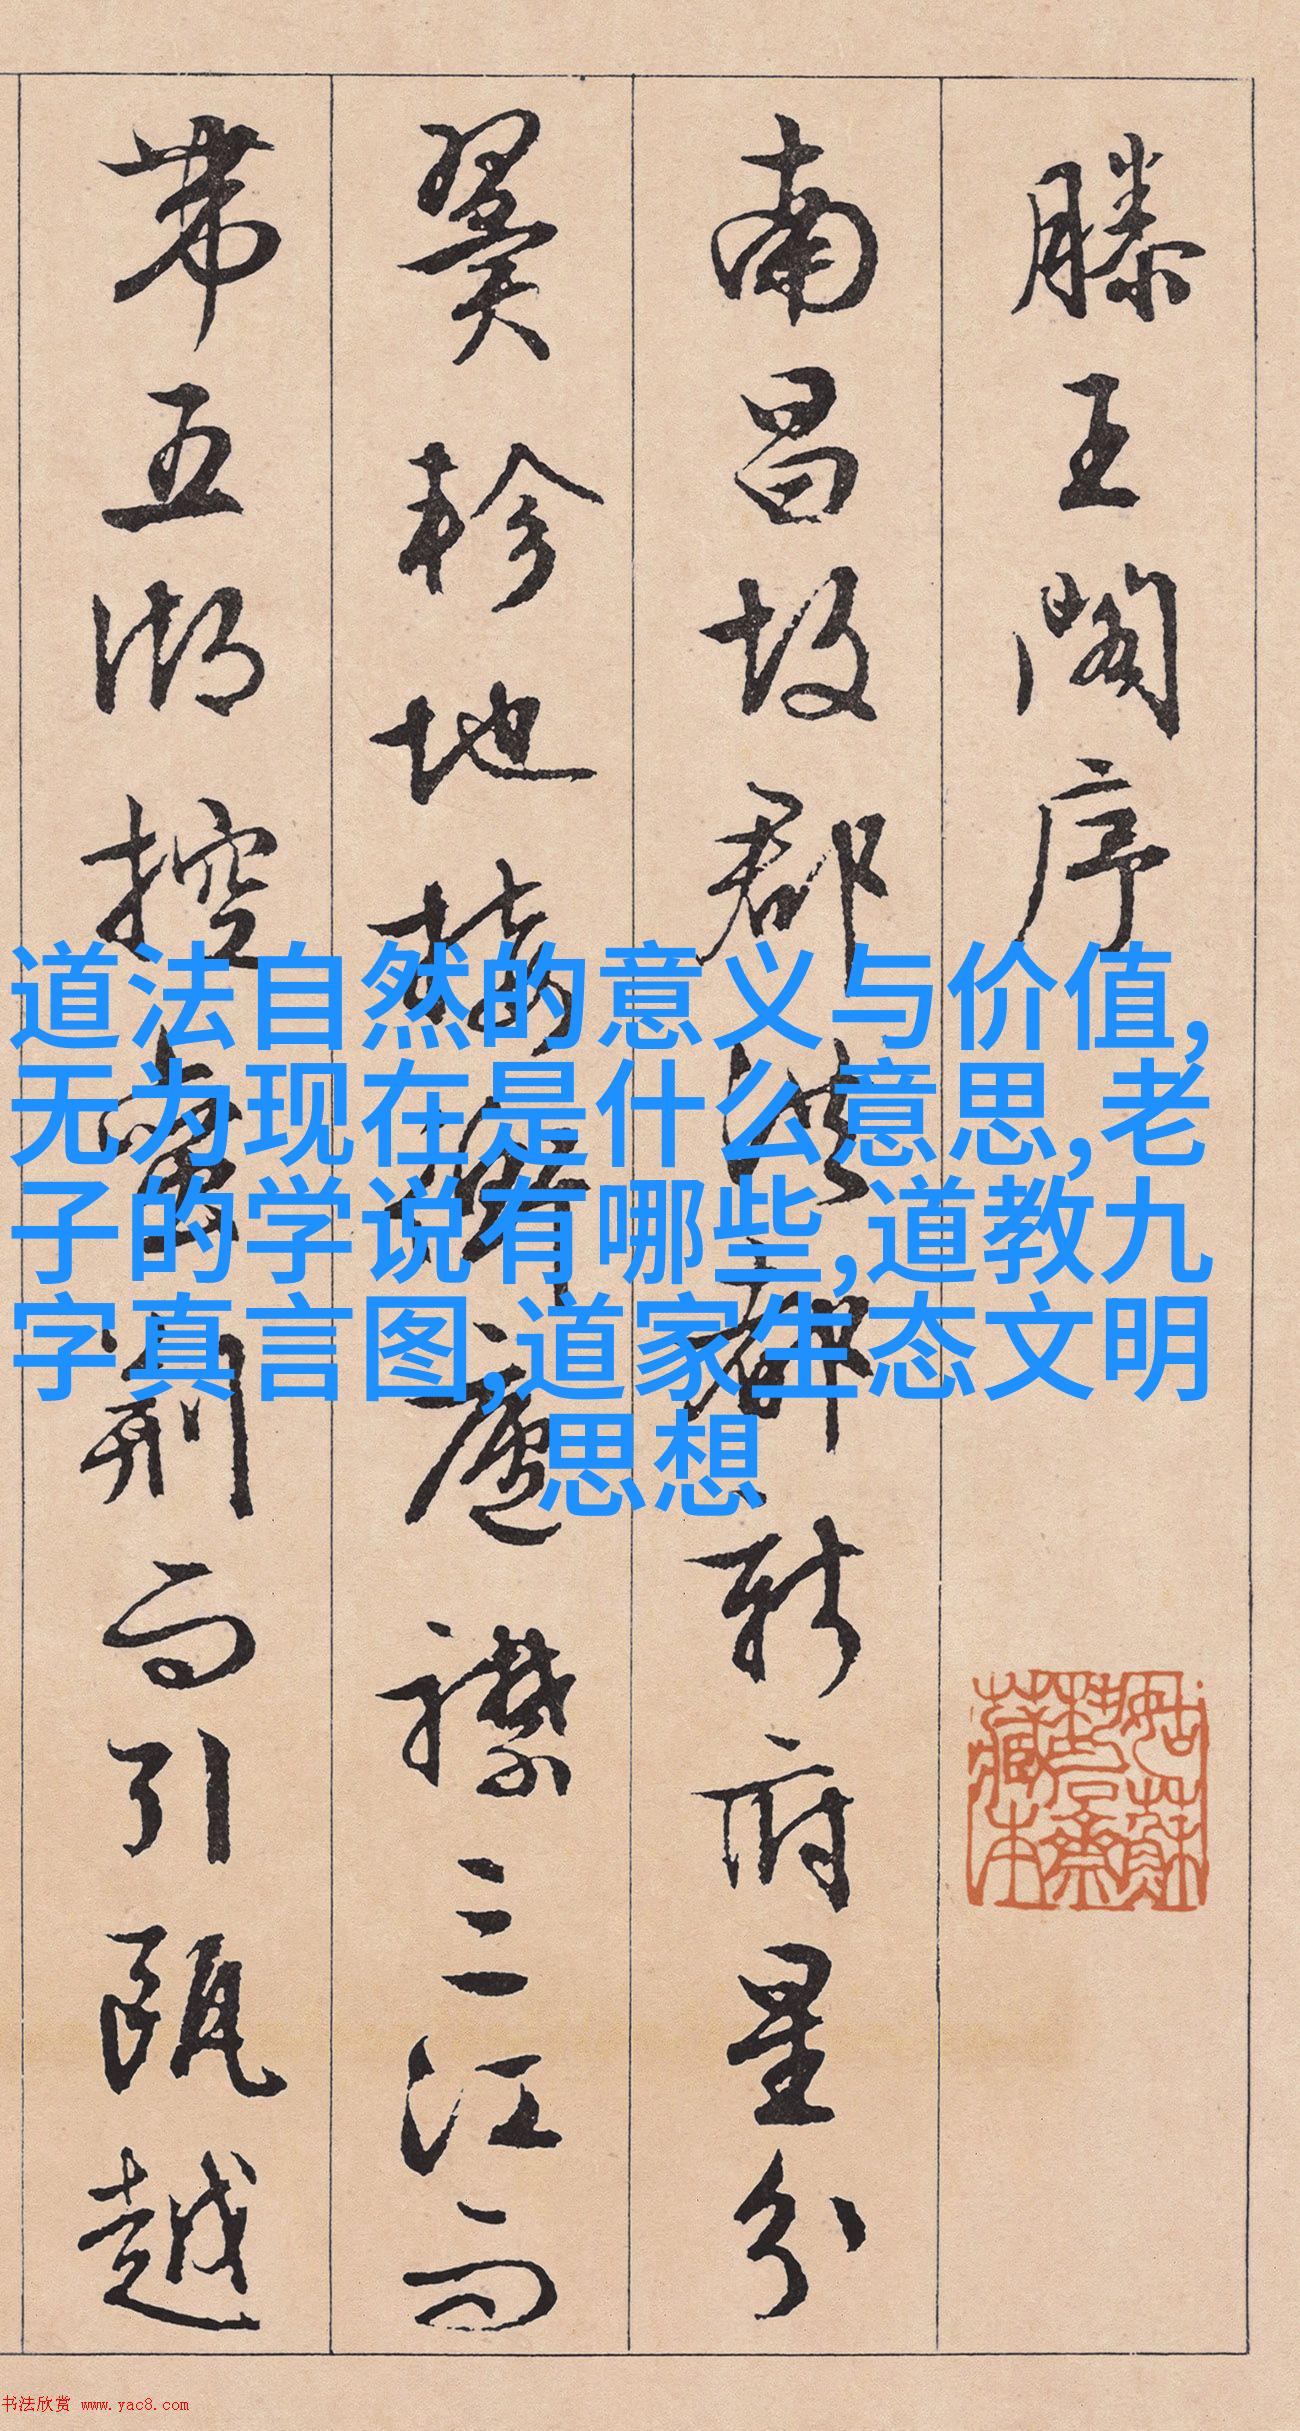 滕王阁序
南昌故郡洪都新府星分
翼轸地接衡庐襟三江而
带五湖控蛮荆而引瓯越
道法自然的意义与价值,
无为现在是什么意思,老
子的学说有哪些,道教九
字真言图,道家生态文明
思想
书法欣赏 www.yac8.com